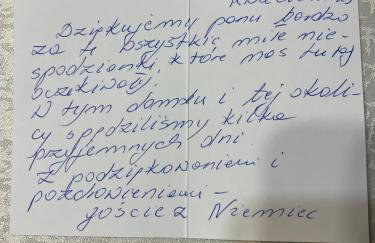 Dziękujemy panu bardzo
za te wszystkie miłe nie-
spodzianki, które nas tutaj
oczekiwały.
W tym domku i tej okoli-
cy spędziliśmy kilka
przyjemnych dni
z podziękowaniem i
pozdrowieniami –
goście z Niemiec